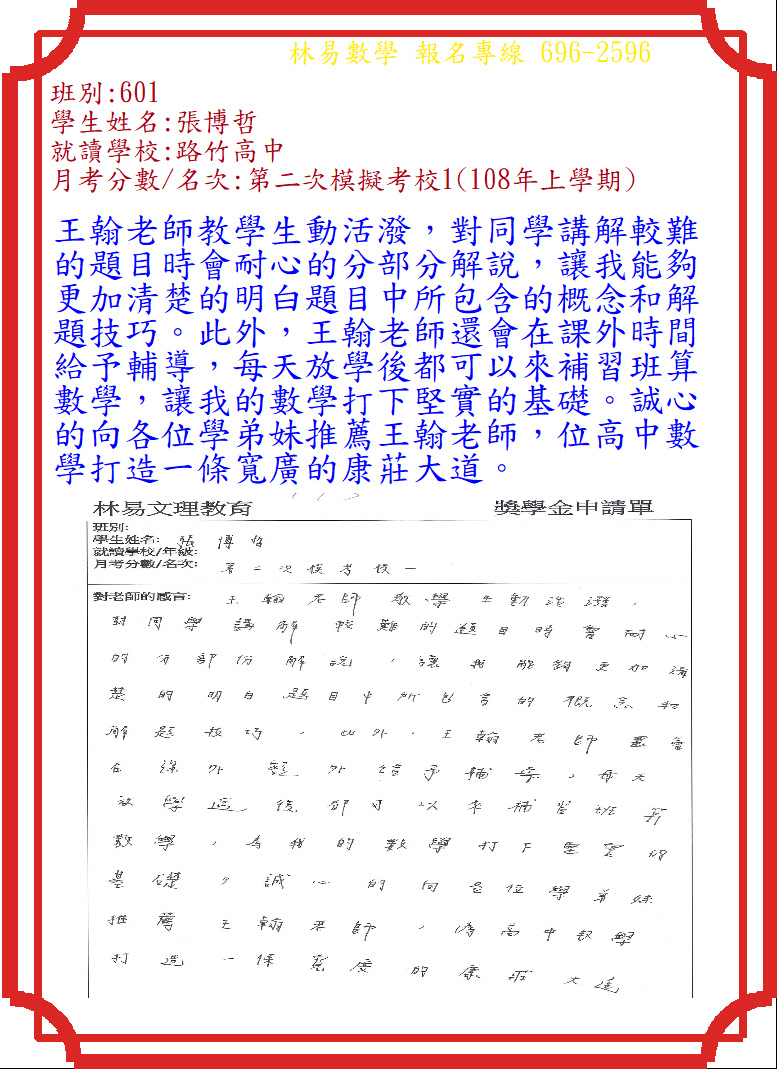 林易數學 報名專線 696-2596
班別:601
學生姓名:張博哲
就讀學校:路竹高中
月考分數/名次:第二次模擬考校1(108年上學期)
王翰老師教學生動活潑，對同學講解較難
的題目時會耐心的分部分解說，讓我能夠
更加清楚的明白題目中所包含的概念和解
題技巧。此外，王翰老師還會在課外時間
給予輔導，每天放學後都可以來補習班算
數學，讓我的數學打下堅實的基礎。誠心
的向各位學弟妹推薦王翰老師，位高中數
學打造一條寬廣的康莊大道。
林易文理教育 獎學金申請單
班別:
學生姓名: 張博哲
就讀學校/年級:
月考分數/名次: 第二次模考校一
對老師的感言: 王翰老師教學生動活潑，
對同學講解較難的題目時會耐心
的分部份解說，讓我能夠更加清
楚的明白題目中所包含的概念和
解題技巧，此外，王翰老師還會
在課外 外給予輔導，每天
放學 後都可以來補習班算
數學，為我的數學打下堅實的
基礎，誠心的向各位學弟妹
推薦王翰老師，為高中數學
打造一條寬廣的康莊大道